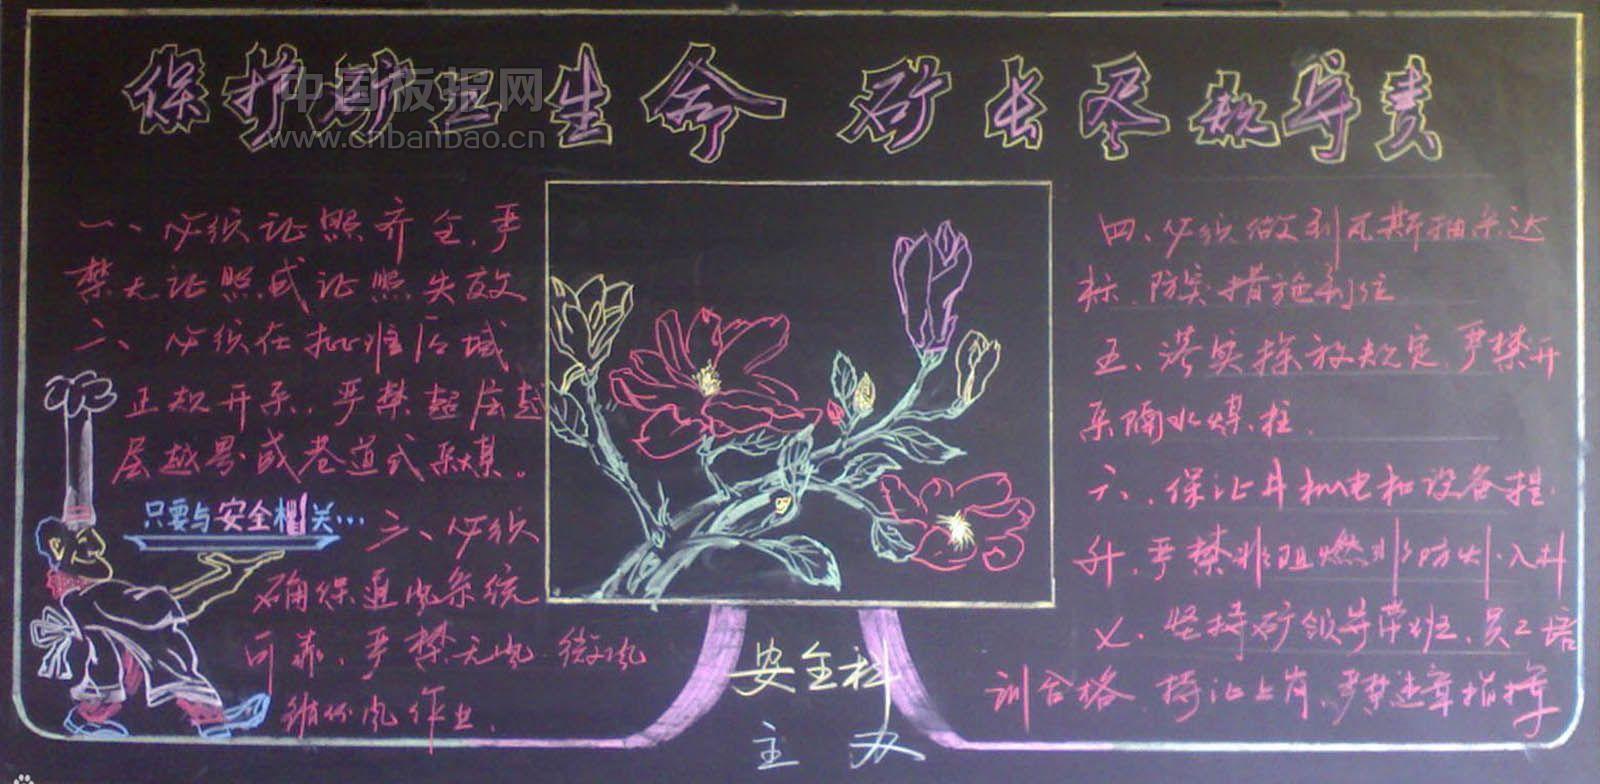 保护矿工生命 矿长尽职尽责
中国板报网
www.cnbanbao.cn
一、必须证照齐全,严
禁无证照或证照失效
二、必须在批准区域
正规开采,严禁超层越
层越界或巷道式采煤。
只要与安全相关…
三、必须
确保通风系统
可靠,严禁无风、微风
循环风作业.
四、必须做到瓦斯抽采达
标、防突措施到位
五、落实探放规定,严禁开
采隔水煤柱.
六、保证井机电和设备提
升,严禁非阻燃非防火入井
七、坚持矿领导带班、员工培
训合格、持证上岗、严禁违章指挥
安全科
主办